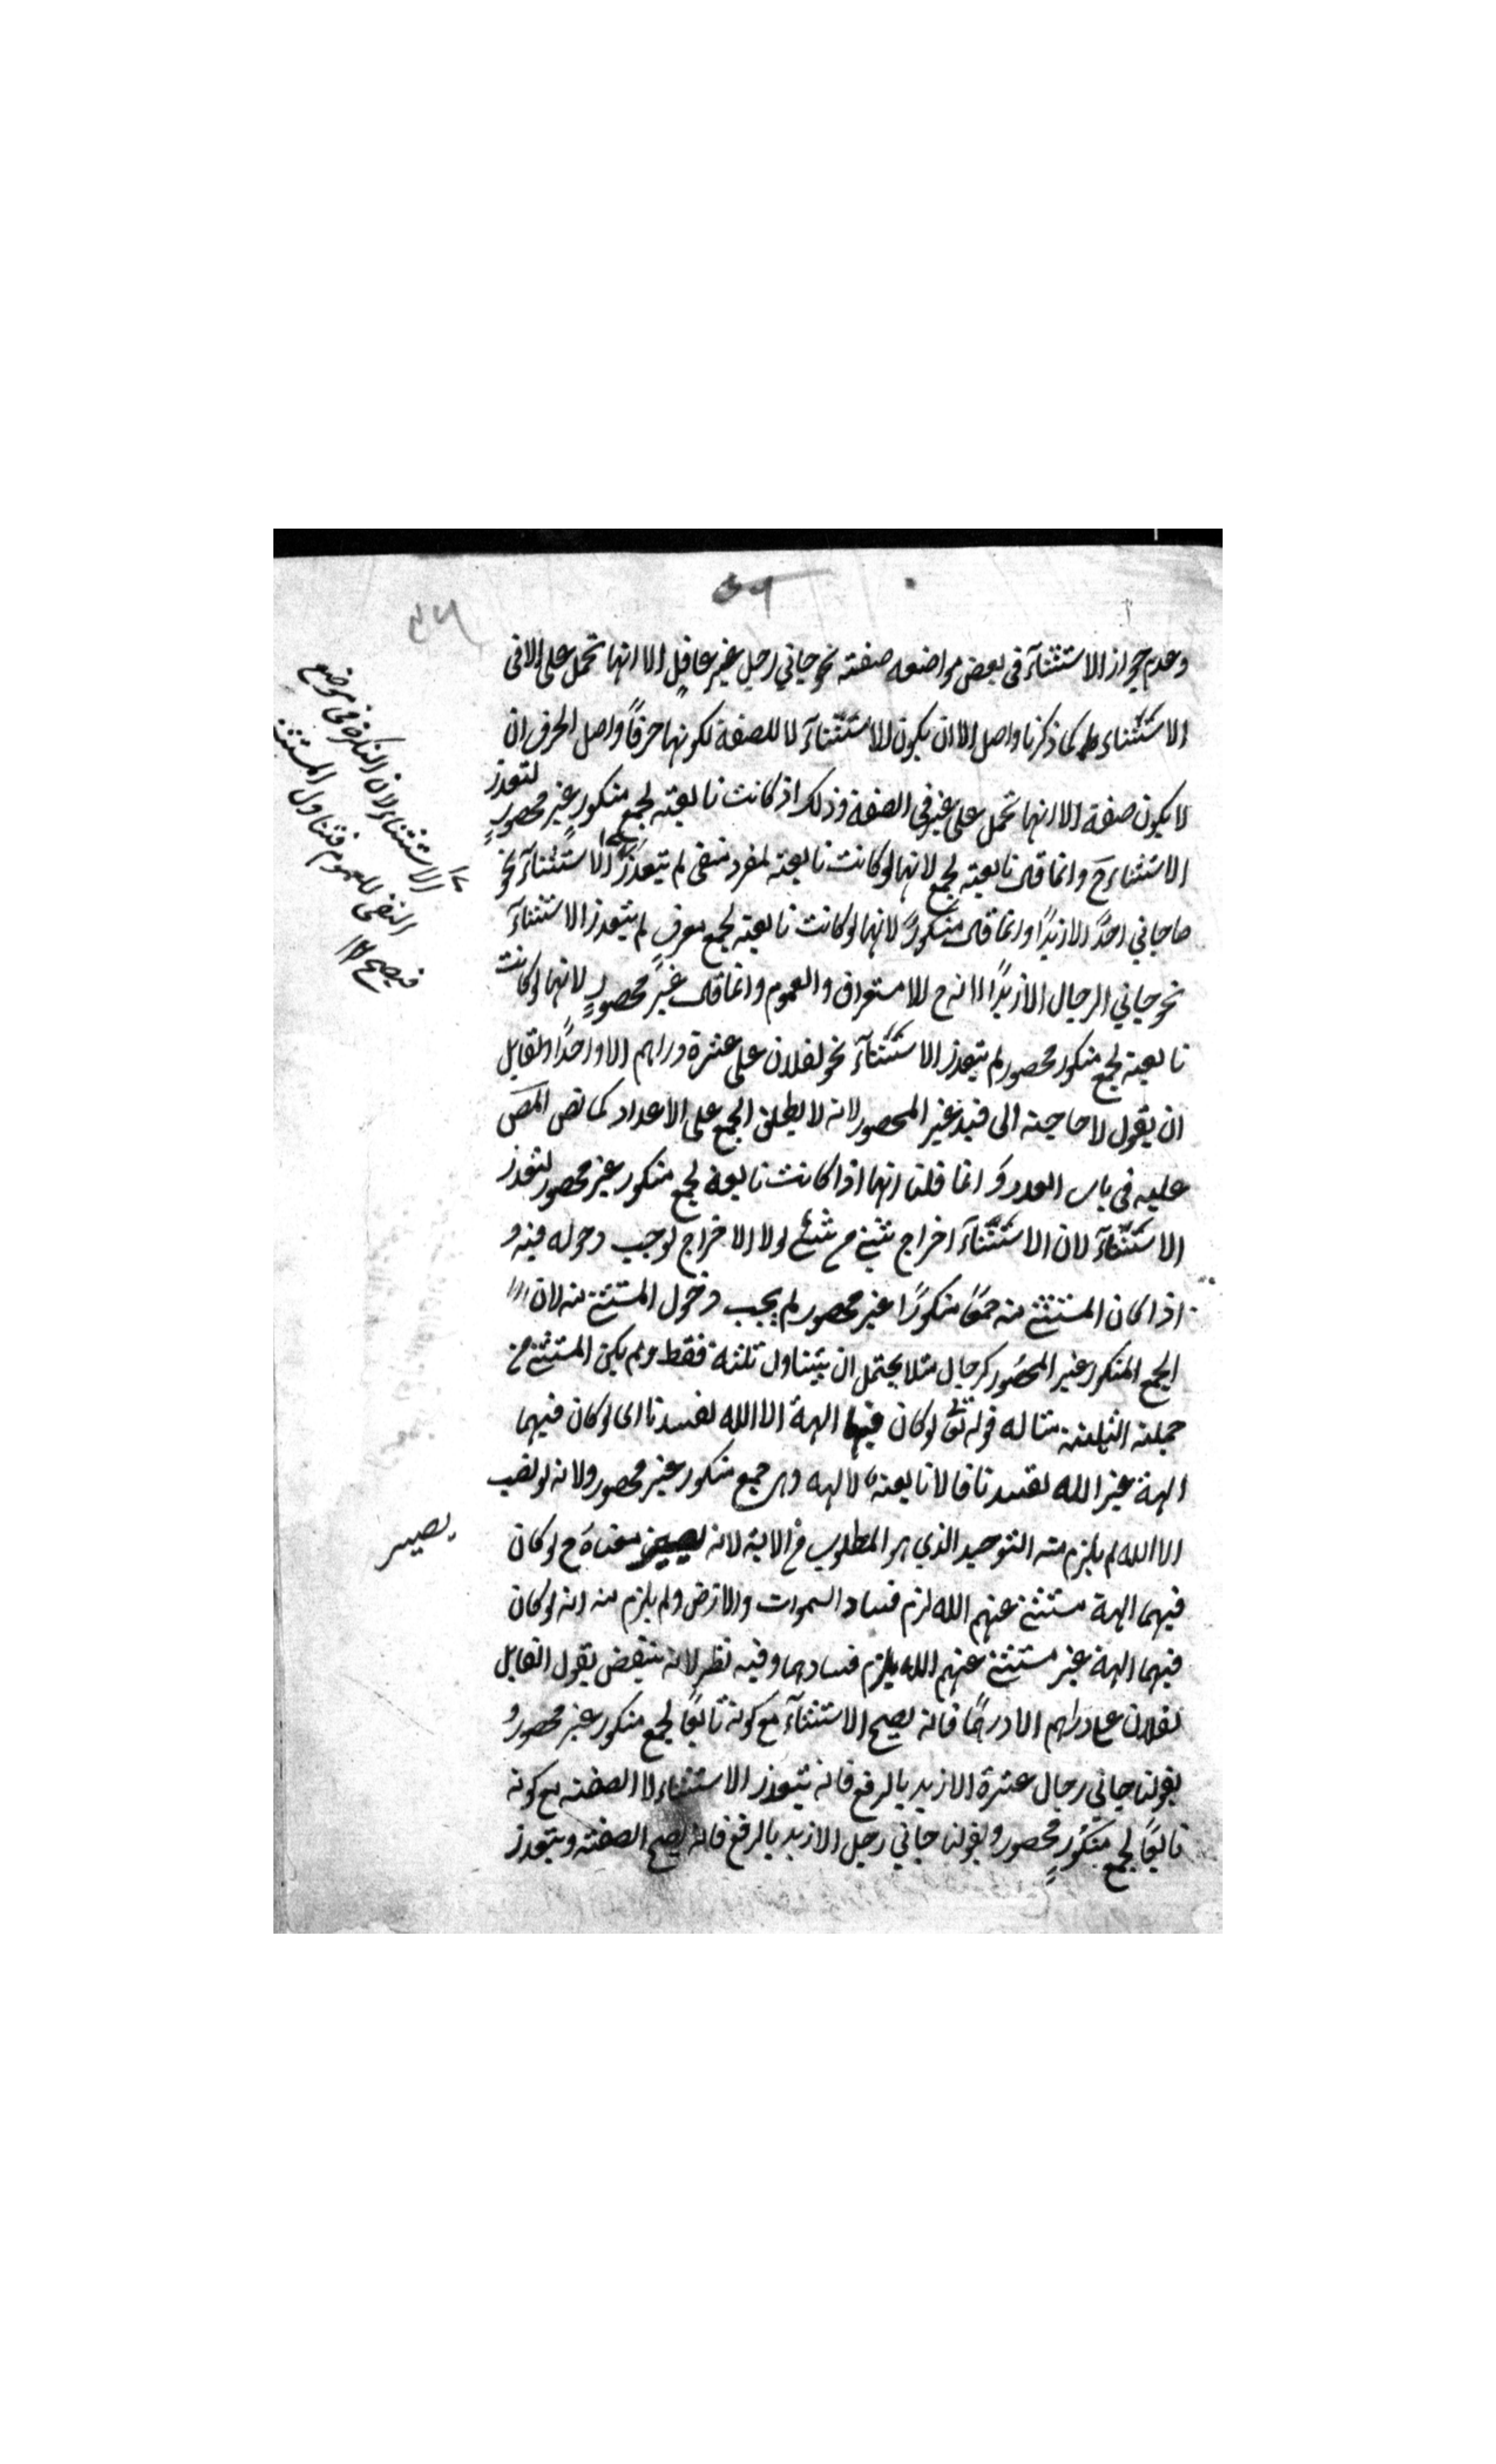 وعدم جواز الاستثنآء فى بعض مواضعه صفته نحو جاني رجل غير عاقل الا انها تحمل على الا فى
الاستثناء كما ذكرنا واصل الا ان يكون للاستثنآء لا للصفة لكونها حرفًا واصل الحرف ان
لا يكون صفة الا انها تحمل على غير فى الصفة وذلك اذ كانت تابعته لجمع منكور غير محصورٍ لتعذر
الاستثناء ح وانما قلى تابعته لجمع لانها لو كانت تابعته لمفرد منفى لم يتعذر الاستثنآء نحو
ما جاني احدٌ الا زيدًا وانما قلى منكورٍ لانها لو كانت تابعته لجمع معرف لم يتعذر الاستثنآء
نحو جاني الرجال الا زيدًا لانه ح للاستغراق والعموم وانما قلى غير محصورٍ لانها لو كانت
تابعته لجمع منكور محصور لم يتعذر الاستثنآء نحو لفلان على عشرة دراهم الا واحدًا ولقايل
ان يقول لا حاجته الى قيد غير المحصور لانه لا يطلق الجمع على الاعداد كما نص المص
عليه فى باب العدد و انما قلنا انها اذا كانت تابعة لجمع منكور غير محصور لتعذر
الاستثنآء لان الاستثنآء اخراج شئ من شئ لولا الاخراج لوجب دخوله فيه و
اذا كان المستثنى منه جمعًا منكورًا غير محصور لم يجب دخول المستثنى منه لان
الجمع المنكور غير المحصور كرجال مثلا يحتمل ان يتناول ثلثة فقط ولم يكن المستثنى من
جملته الثلثته مثاله قوله تع لو كان فيهما الهة الا الله لفسدتا اى لو كان فيهما
الهة غير الله لفسدتا فالا تابعته لالهه وهى جمع منكور غير محصور ولانه لو نصب
الا الله لم يلزم منه التوحيد الذي هو المطلوب من الاية لانه معناه ح لو كان
فيهما الهة مستثنى عنهم الله لزم فساد السموات والارض ولم يلزم منه انه لو كان
فيهما الهة غير مستثنى عنهم الله يلزم فسادهما وفيه نظر لانه ينتقض بقول القايل
لفلان على دراهم الا درهمًا فانه يصح الاستثنآء مع كونه تابعًا لجمع منكور غير محصور و
بقولنا جاني رجال عشرة الا زيد بالرفع فانه يتعذر الاستثناء لا الصفته مع كونه
تابعًا لجمع منكورٍ محصور وبقولنا جاني رجل الا زيد بالرفع فانه يصح الصفته ويتعذر
الاستثناء لان النكرة فى موضع
النفى للعموم فتناول المستثنى
فيصح ١٢
يصير